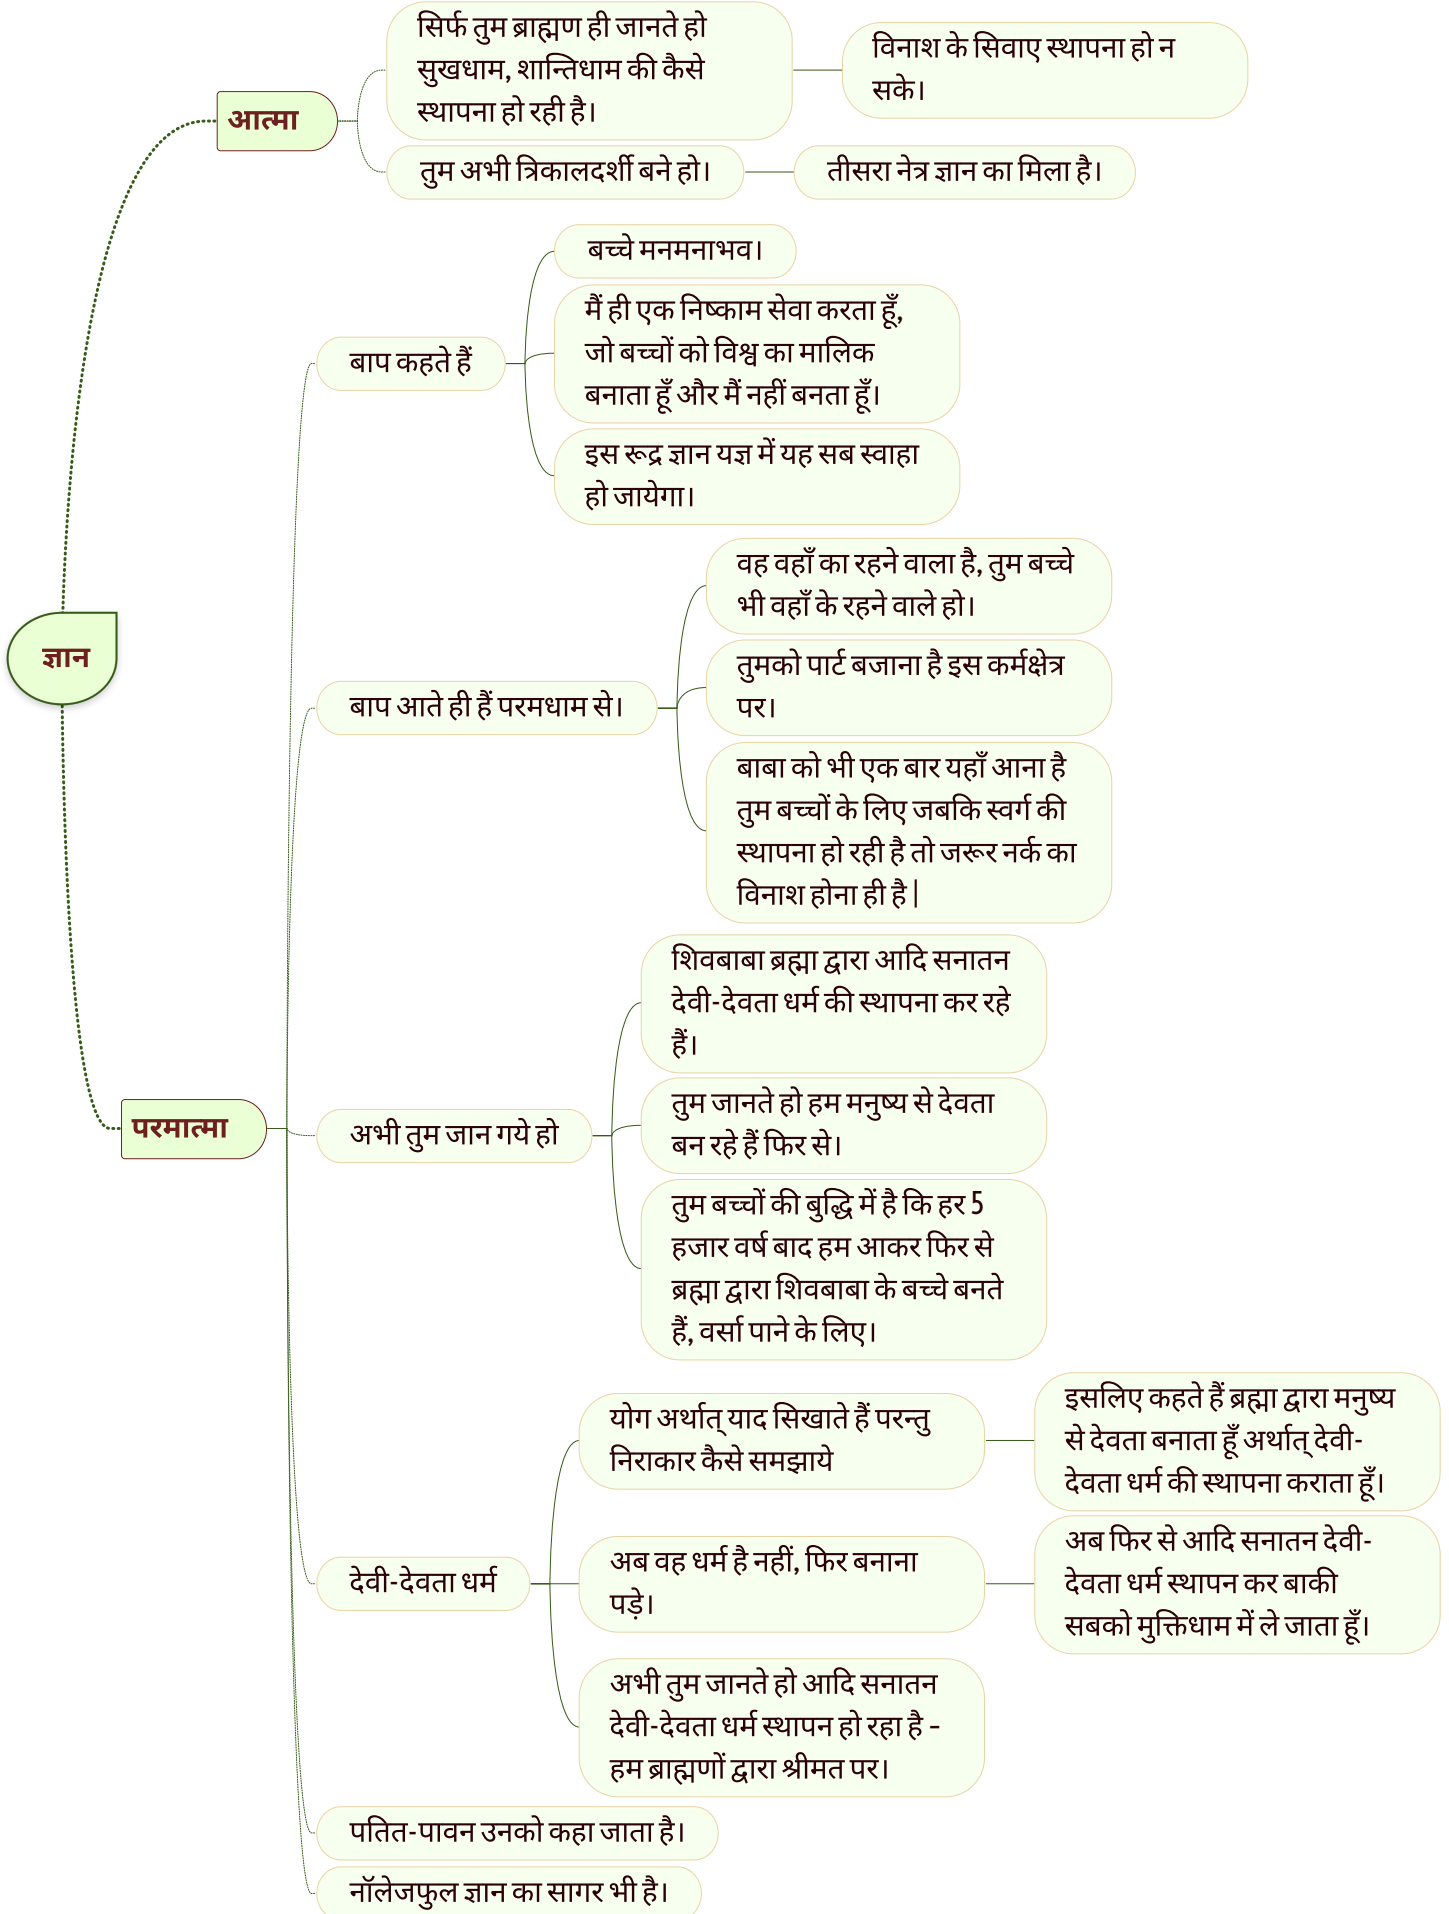 ज्ञान
आत्मा
सिर्फ तुम ब्राह्मण ही जानते हो
सुखधाम, शान्तिधाम की कैसे
स्थापना हो रही है।
विनाश के सिवाए स्थापना हो न
सके।
तुम अभी त्रिकालदर्शी बने हो।
तीसरा नेत्र ज्ञान का मिला है।
परमात्मा
बाप कहते हैं
बच्चे मनमनाभव।
मैं ही एक निष्काम सेवा करता हूँ,
जो बच्चों को विश्व का मालिक
बनाता हूँ और मैं नहीं बनता हूँ।
इस रूद्र ज्ञान यज्ञ में यह सब स्वाहा
हो जायेगा।
बाप आते ही हैं परमधाम से।
वह वहाँ का रहने वाला है, तुम बच्चे
भी वहाँ के रहने वाले हो।
तुमको पार्ट बजाना है इस कर्मक्षेत्र
पर।
बाबा को भी एक बार यहाँ आना है
तुम बच्चों के लिए जबकि स्वर्ग की
स्थापना हो रही है तो जरूर नर्क का
विनाश होना ही है|
अभी तुम जान गये हो
शिवबाबा ब्रह्मा द्वारा आदि सनातन
देवी-देवता धर्म की स्थापना कर रहे
हैं।
तुम जानते हो हम मनुष्य से देवता
बन रहे हैं फिर से।
तुम बच्चों की बुद्धि में है कि हर 5
हजार वर्ष बाद हम आकर फिर से
ब्रह्मा द्वारा शिवबाबा के बच्चे बनते
हैं, वर्सा पाने के लिए।
देवी-देवता धर्म
योग अर्थात् याद सिखाते हैं परन्तु
निराकार कैसे समझाये
इसलिए कहते हैं ब्रह्मा द्वारा मनुष्य
से देवता बनाता हूँ अर्थात् देवी-
देवता धर्म की स्थापना कराता हूँ।
अब वह धर्म है नहीं, फिर बनाना
पड़े।
अब फिर से आदि सनातन देवी-
देवता धर्म स्थापन कर बाकी
सबको मुक्तिधाम में ले जाता हूँ।
अभी तुम जानते हो आदि सनातन
देवी-देवता धर्म स्थापन हो रहा है –
हम ब्राह्मणों द्वारा श्रीमत पर।
पतित-पावन उनको कहा जाता है।
नॉलेजफुल ज्ञान का सागर भी है।